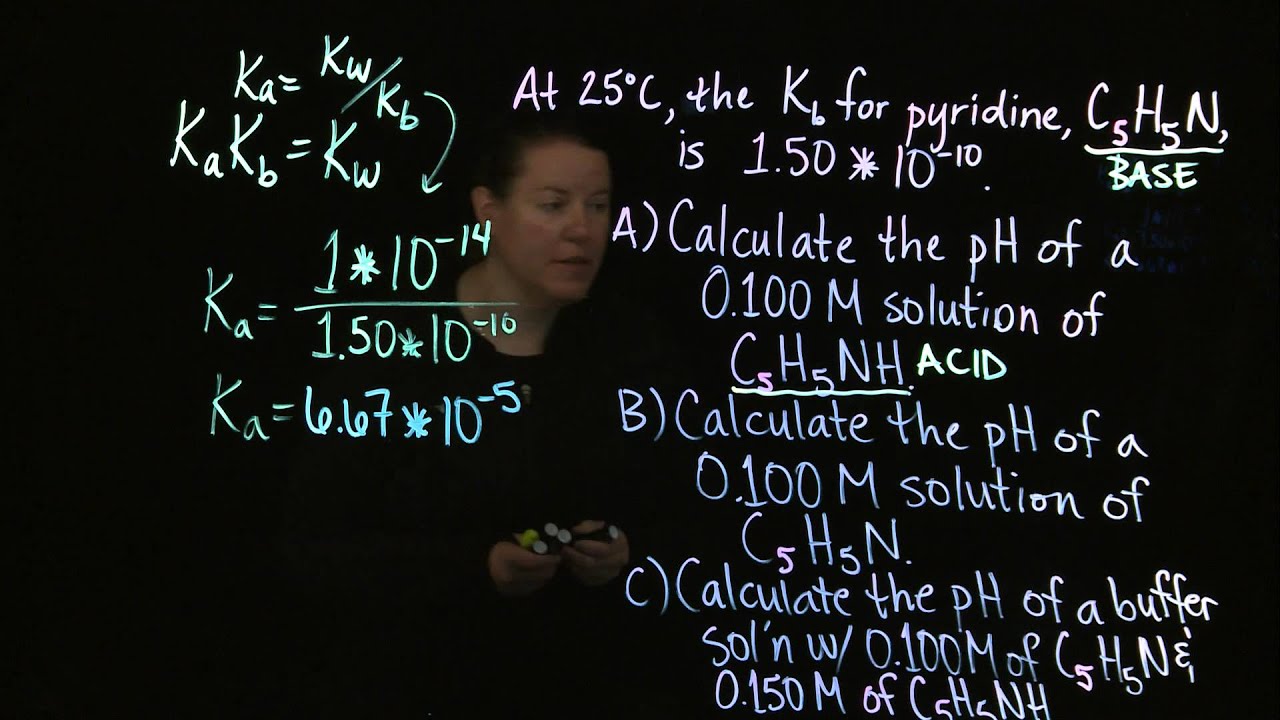 Ka = Kw/Kb
KaKb = Kw
Ka = 1*10^-14 / 1.50*10^-10
Ka = 6.67*10^-5
At 25°C, the Kb for pyridine, C5H5N,
is 1.50 * 10^-10. BASE
A) Calculate the pH of a
0.100 M solution of
C5H5NH. ACID
B) Calculate the pH of a
0.100 M solution of
C5H5N.
C) Calculate the pH of a buffer
sol'n w/ 0.100 M of C5H5N &
0.150 M of C5H5NH